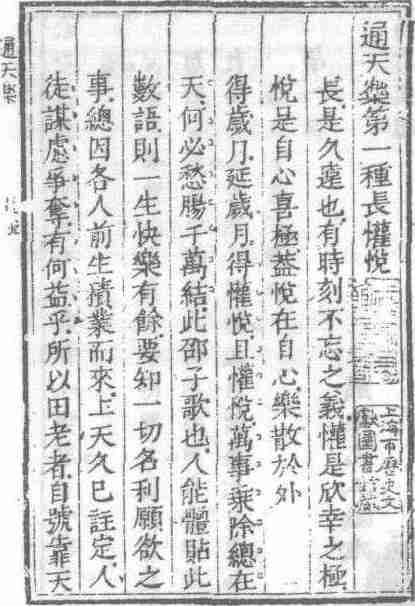 通天樂第一種長懽悅
長是久遠也有時刻不忘之義懽是欣幸之極
悅是自心喜極蓋悅在自心樂散於外
得歲月延歲月得懽悅且懽悅萬事乗除總在
天何必愁腸千萬結此邵子歌也人能體貼此
數語則一生快樂有餘要知一切名利願欲之
事總因各人前生積業而來上天久已註定人
徒謀慮爭奪有何益乎所以田老者自號靠天
通天樂
上海市歷史文
獻圖書館藏